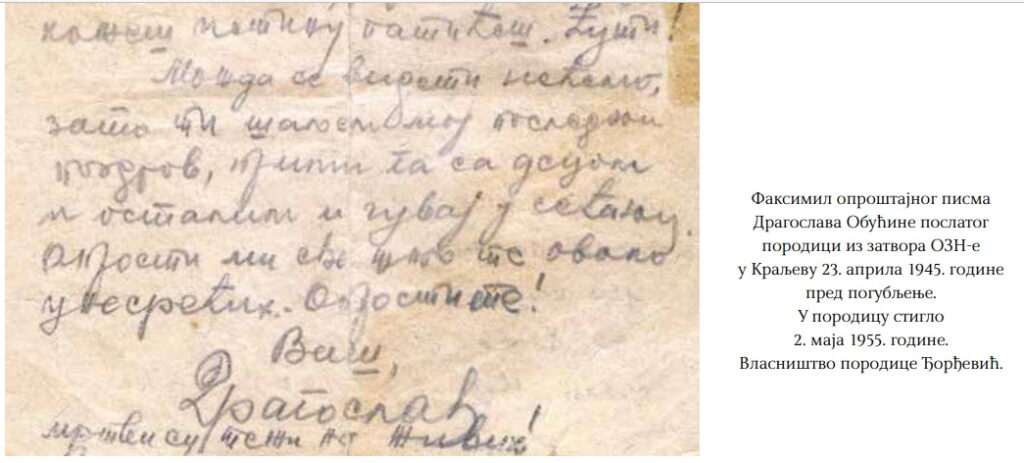 истину патићеш. Ћути!
Можда се видети нећемо,
зато ти шаљем мој последњи
поздрав, прими га са децом
и осталим и чувај у сећању.
Опрости ми све што те овако
унесрећих. Опростите!
Ваш,
Драгослав
су
Факсимил опроштајног писма
Драгослава Обућине послатог
породици из затвора ОЗН-е
у Краљеву 23. априла 1945. године
пред погубљење.
У породицу стигло
2. маја 1955. године.
Власништво породице Ђорђевић.